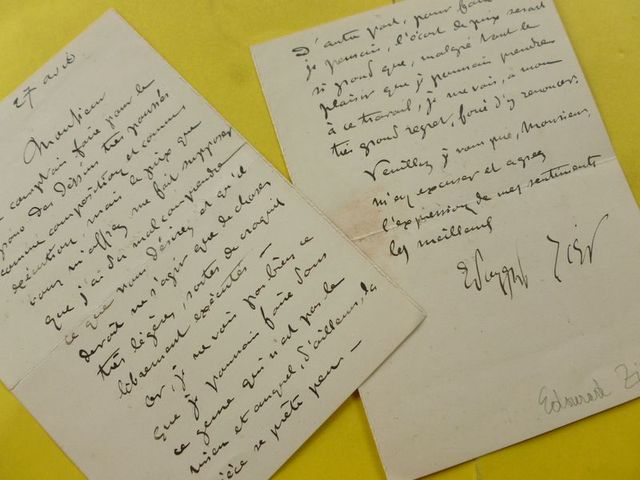 27 avril
Monsieur
comptais faire pour le
piano des dessins très poussés
comme composition et comme
exécution, mais le prix que
vous m'offrez me fait supposer
que j'ai dû mal comprendre
ce que vous désirez et qu'il
devait ne s'agir que de choses
très légères, sortes de croquis
librement exécutés —
or je ne vois pas bien ce
que je pourrais faire dans
ce genre qui n'est pas le
mien et auquel, d'ailleurs, la
pièce se prête peu —
D'autre part, pour faire
je pensais, l'écart de prix serait
si grand que, malgré tout le
plaisir que j'y pourrais prendre
à ce travail, je me vois, à mon
très grand regret, forcé d'y renoncer.
Veuillez, je vous prie, Monsieur,
m'en excuser et agréer
l'expression de mes sentiments
les meilleurs
Edouard Zier
Edouard Zi